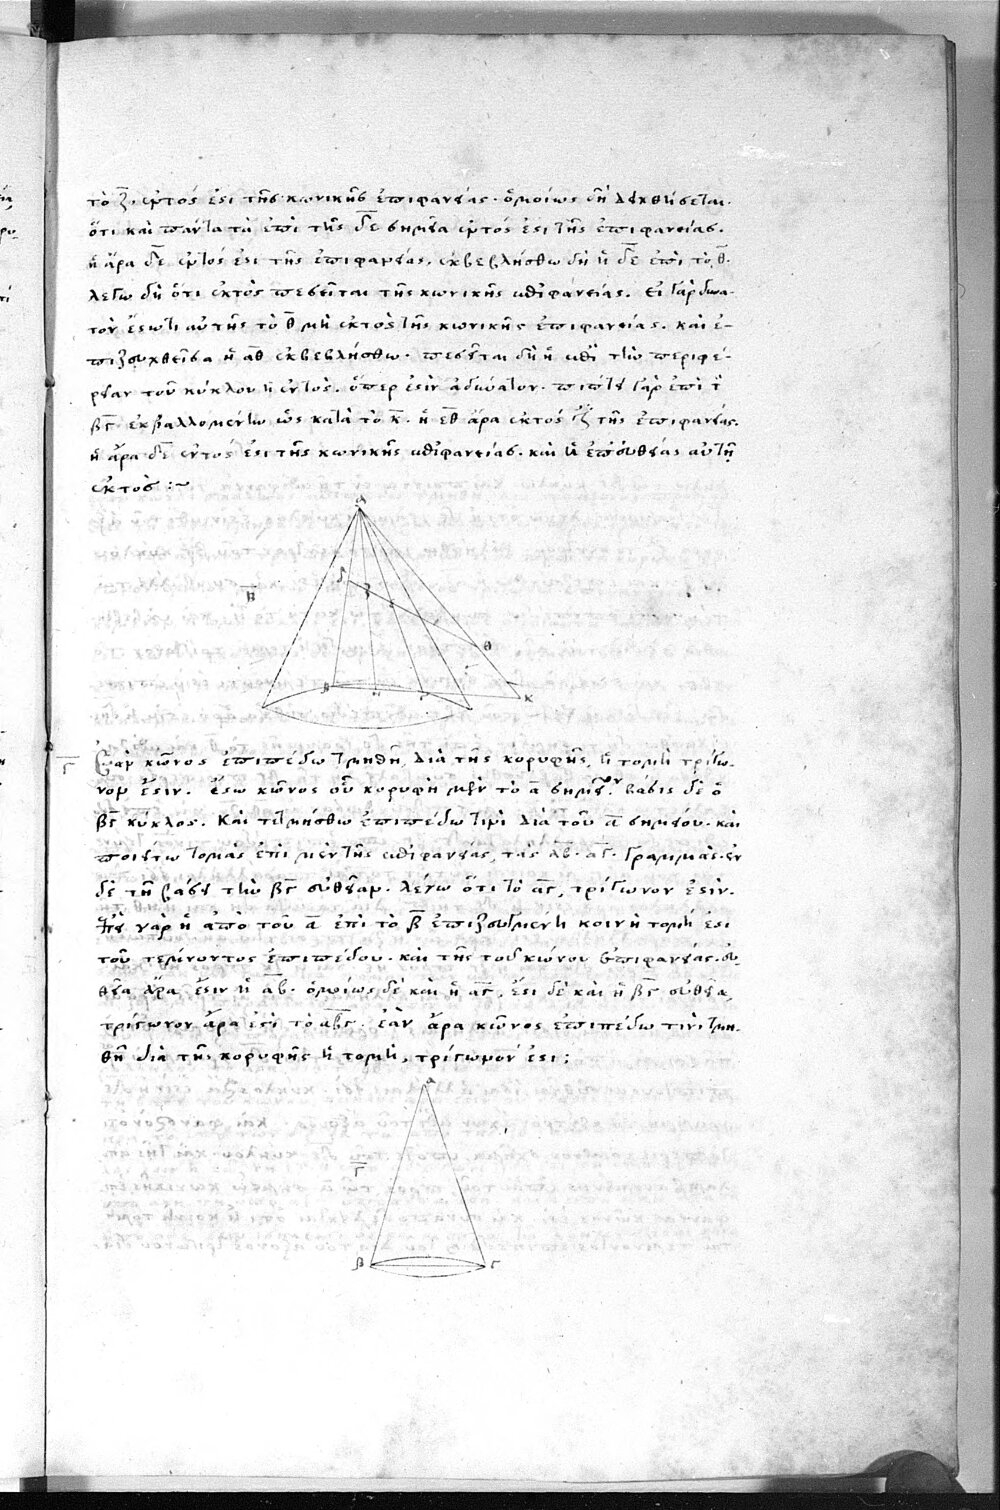 τὸ ζ̅ ἐντός ἐστι τῆς κωνικῆς ἐπιφανείας. ὁμοίως δὴ δειχθήσεται
ὅτι καὶ πάντα τὰ ἐπὶ τῆς δ̅ε̅ σημεῖα ἐντός ἐστι τῆς ἐπιφανείας.
ἡ ἄρα δ̅ε̅ ἐντός ἐστι τῆς ἐπιφανείας. ἐκβεβλήσθω δὴ ἡ δ̅ε̅ ἐπὶ τὸ θ̅.
λέγω δὴ ὅτι ἐκτὸς πεσεῖται τῆς κωνικῆς ἐπιφανείας. εἰ γὰρ δυνα-
τὸν ἔστω τι αὐτῆς τὸ θ̅ μὴ ἐκτὸς τῆς κωνικῆς ἐπιφανείας. καὶ ἐ-
πιζευχθεῖσα ἡ α̅θ̅ ἐκβεβλήσθω. πεσεῖται δὴ ἢ ἐπὶ τὴν περιφέ-
ρειαν τοῦ κύκλου ἢ ἐντός. ὅπερ ἐστὶν ἀδύνατον. πίπτει γὰρ ἐπὶ τὴν
β̅γ̅ ἐκβαλλομένην ὡς κατὰ τὸ κ̅. ἡ ε̅θ̅ ἄρα ἐκτός ἐστι τῆς ἐπιφανείας.
ἡ ἄρα δ̅ε̅ ἐντός ἐστι τῆς κωνικῆς ἐπιφανείας. καὶ ἡ ἐπ' εὐθείας αὐτῇ
ἐκτός :~
α
δ
β̅
ζ
ε
θ
β
η
γ
κ
γ̅
Ἐὰν κῶνος ἐπιπέδῳ τμηθῇ διὰ τῆς κορυφῆς, ἡ τομὴ τρίγω-
νον ἐστιν. ἔστω κῶνος οὗ κορυφὴ μὲν τὸ α̅ σημεῖον. βάσις δὲ ὁ
β̅γ̅ κύκλος. καὶ τετμήσθω ἐπιπέδῳ τινὶ διὰ τοῦ α̅ σημείου. καὶ
ποιείτω τομὰς ἐπὶ μὲν τῆς ἐπιφανείας, τὰς α̅β̅. α̅γ̅. γραμμάς. ἐν
δὲ τῇ βάσει τὴν β̅γ̅ εὐθεῖαν. λέγω ὅτι τὸ α̅β̅γ̅, τρίγωνον ἐστίν.
ἐπεὶ γὰρ ἡ ἀπὸ τοῦ α̅ ἐπὶ τὸ β̅ ἐπιζευγνυμένη κοινὴ τομή ἐστι
τοῦ τέμνοντος ἐπιπέδου. καὶ τῆς τοῦ κώνου ἐπιφανείας. εὐ-
θεῖα ἄρα ἐστιν ἡ α̅β̅. ὁμοίως δὲ καὶ ἡ α̅γ̅. ἔστι δὲ καὶ ἡ β̅γ̅ εὐθεῖα,
τρίγωνον ἄρα ἐστὶ τὸ α̅β̅γ̅. ἐὰν ἄρα κῶνος ἐπιπέδῳ τινὶ τμη-
θῇ διὰ τῆς κορυφῆς ἡ τομή, τρίγωνον ἐστι :
α
γ̅
β
γ